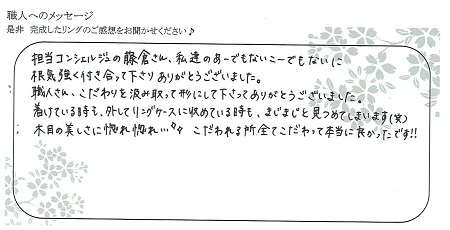 職人へのメッセージ
是非 完成したリングのご感想をお聞かせください♪
担当コンシェルジュの藤倉さん、私達のあーでもないこーでもないに
根気強く付き合って下さりありがとうございました。
職人さん、こだわりを汲み取って形にして下さってありがとうございました。
着けている時も、外してリングケースに収めている時も、まじまじと見つめてしまいます(笑)
木目の美しさに惚れ惚れ…♡ こだわれる所全てこだわって本当に良かったです!!